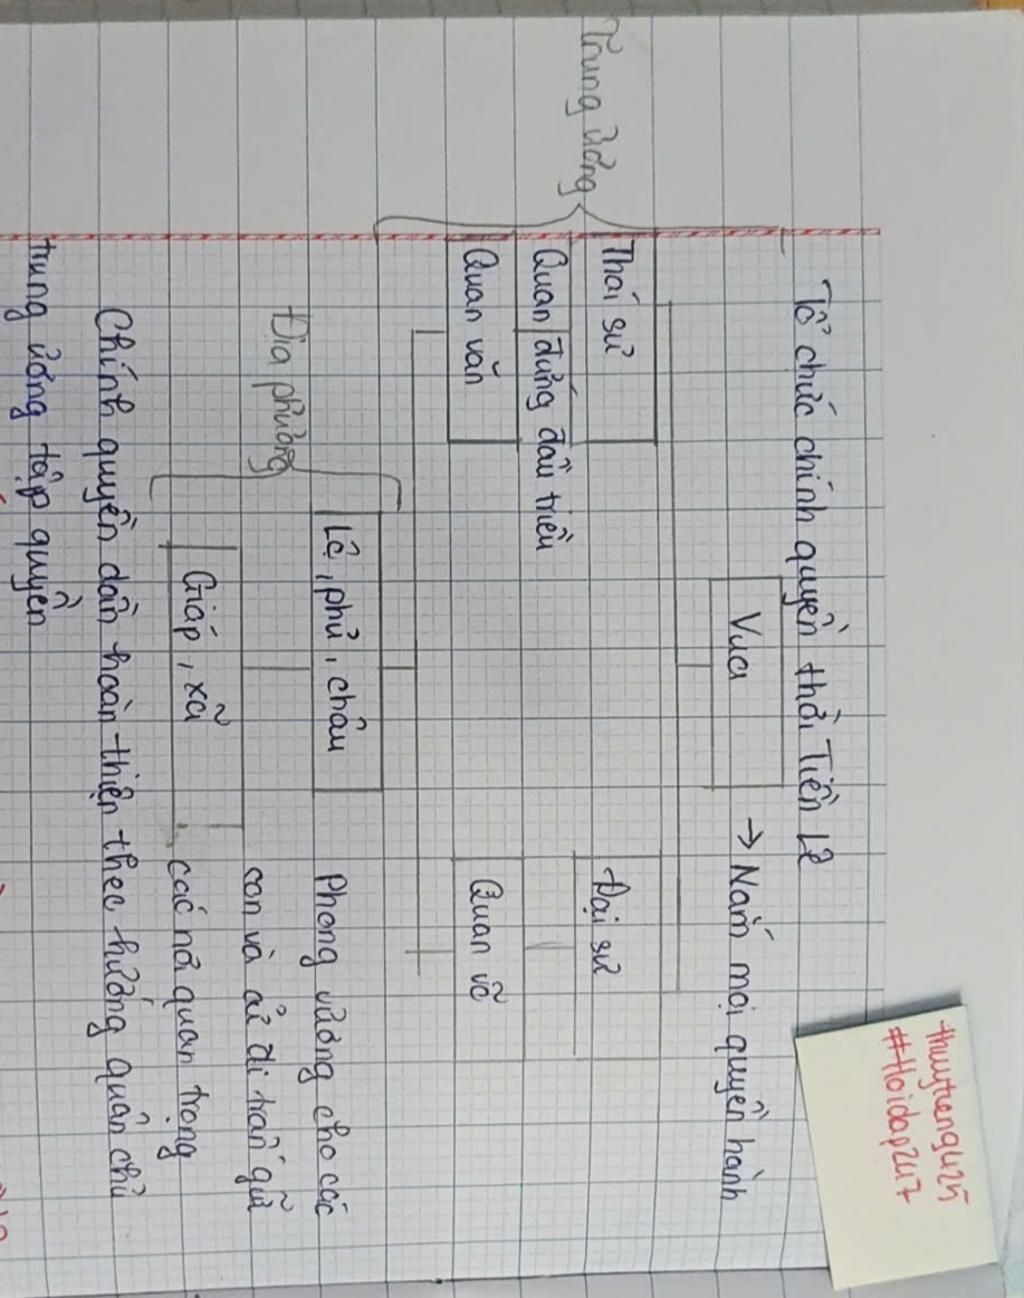 Tổ chức chính quyền thời Tiền Lê
Vua → Nắm mọi quyền hành
Trung ương
Thái sư
Đại sư
Quan đứng đầu triều
Quan văn
Quan võ
Địa phương
Lộ, phủ, châu
Phong vương cho các
con và cử đi trấn giữ
Giáp, xã
các nơi quan trọng
Chính quyền dần hoàn thiện theo hướng quân chủ
trung ương tập quyền
thuytieng425
#Hoidap247